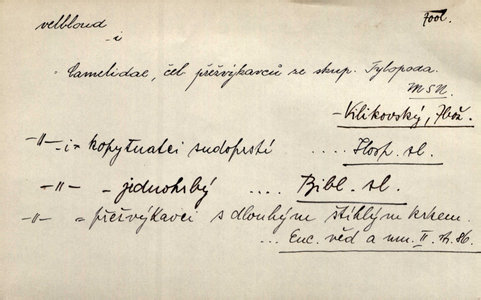 velbloud zool.
-i
Camelidae, čel přežvýkavců ze skup. Tylopoda.
MSN.
- Klikovský, Zbož.
-"- -i = kopytnatci sudoprstí .... Hosp. sl.
-"- - jednohrbý .... Bibl. sl.
-"- = přežvýkavci s dlouhým štíhlým krkem.
... Enc. věd a um. II. 86.